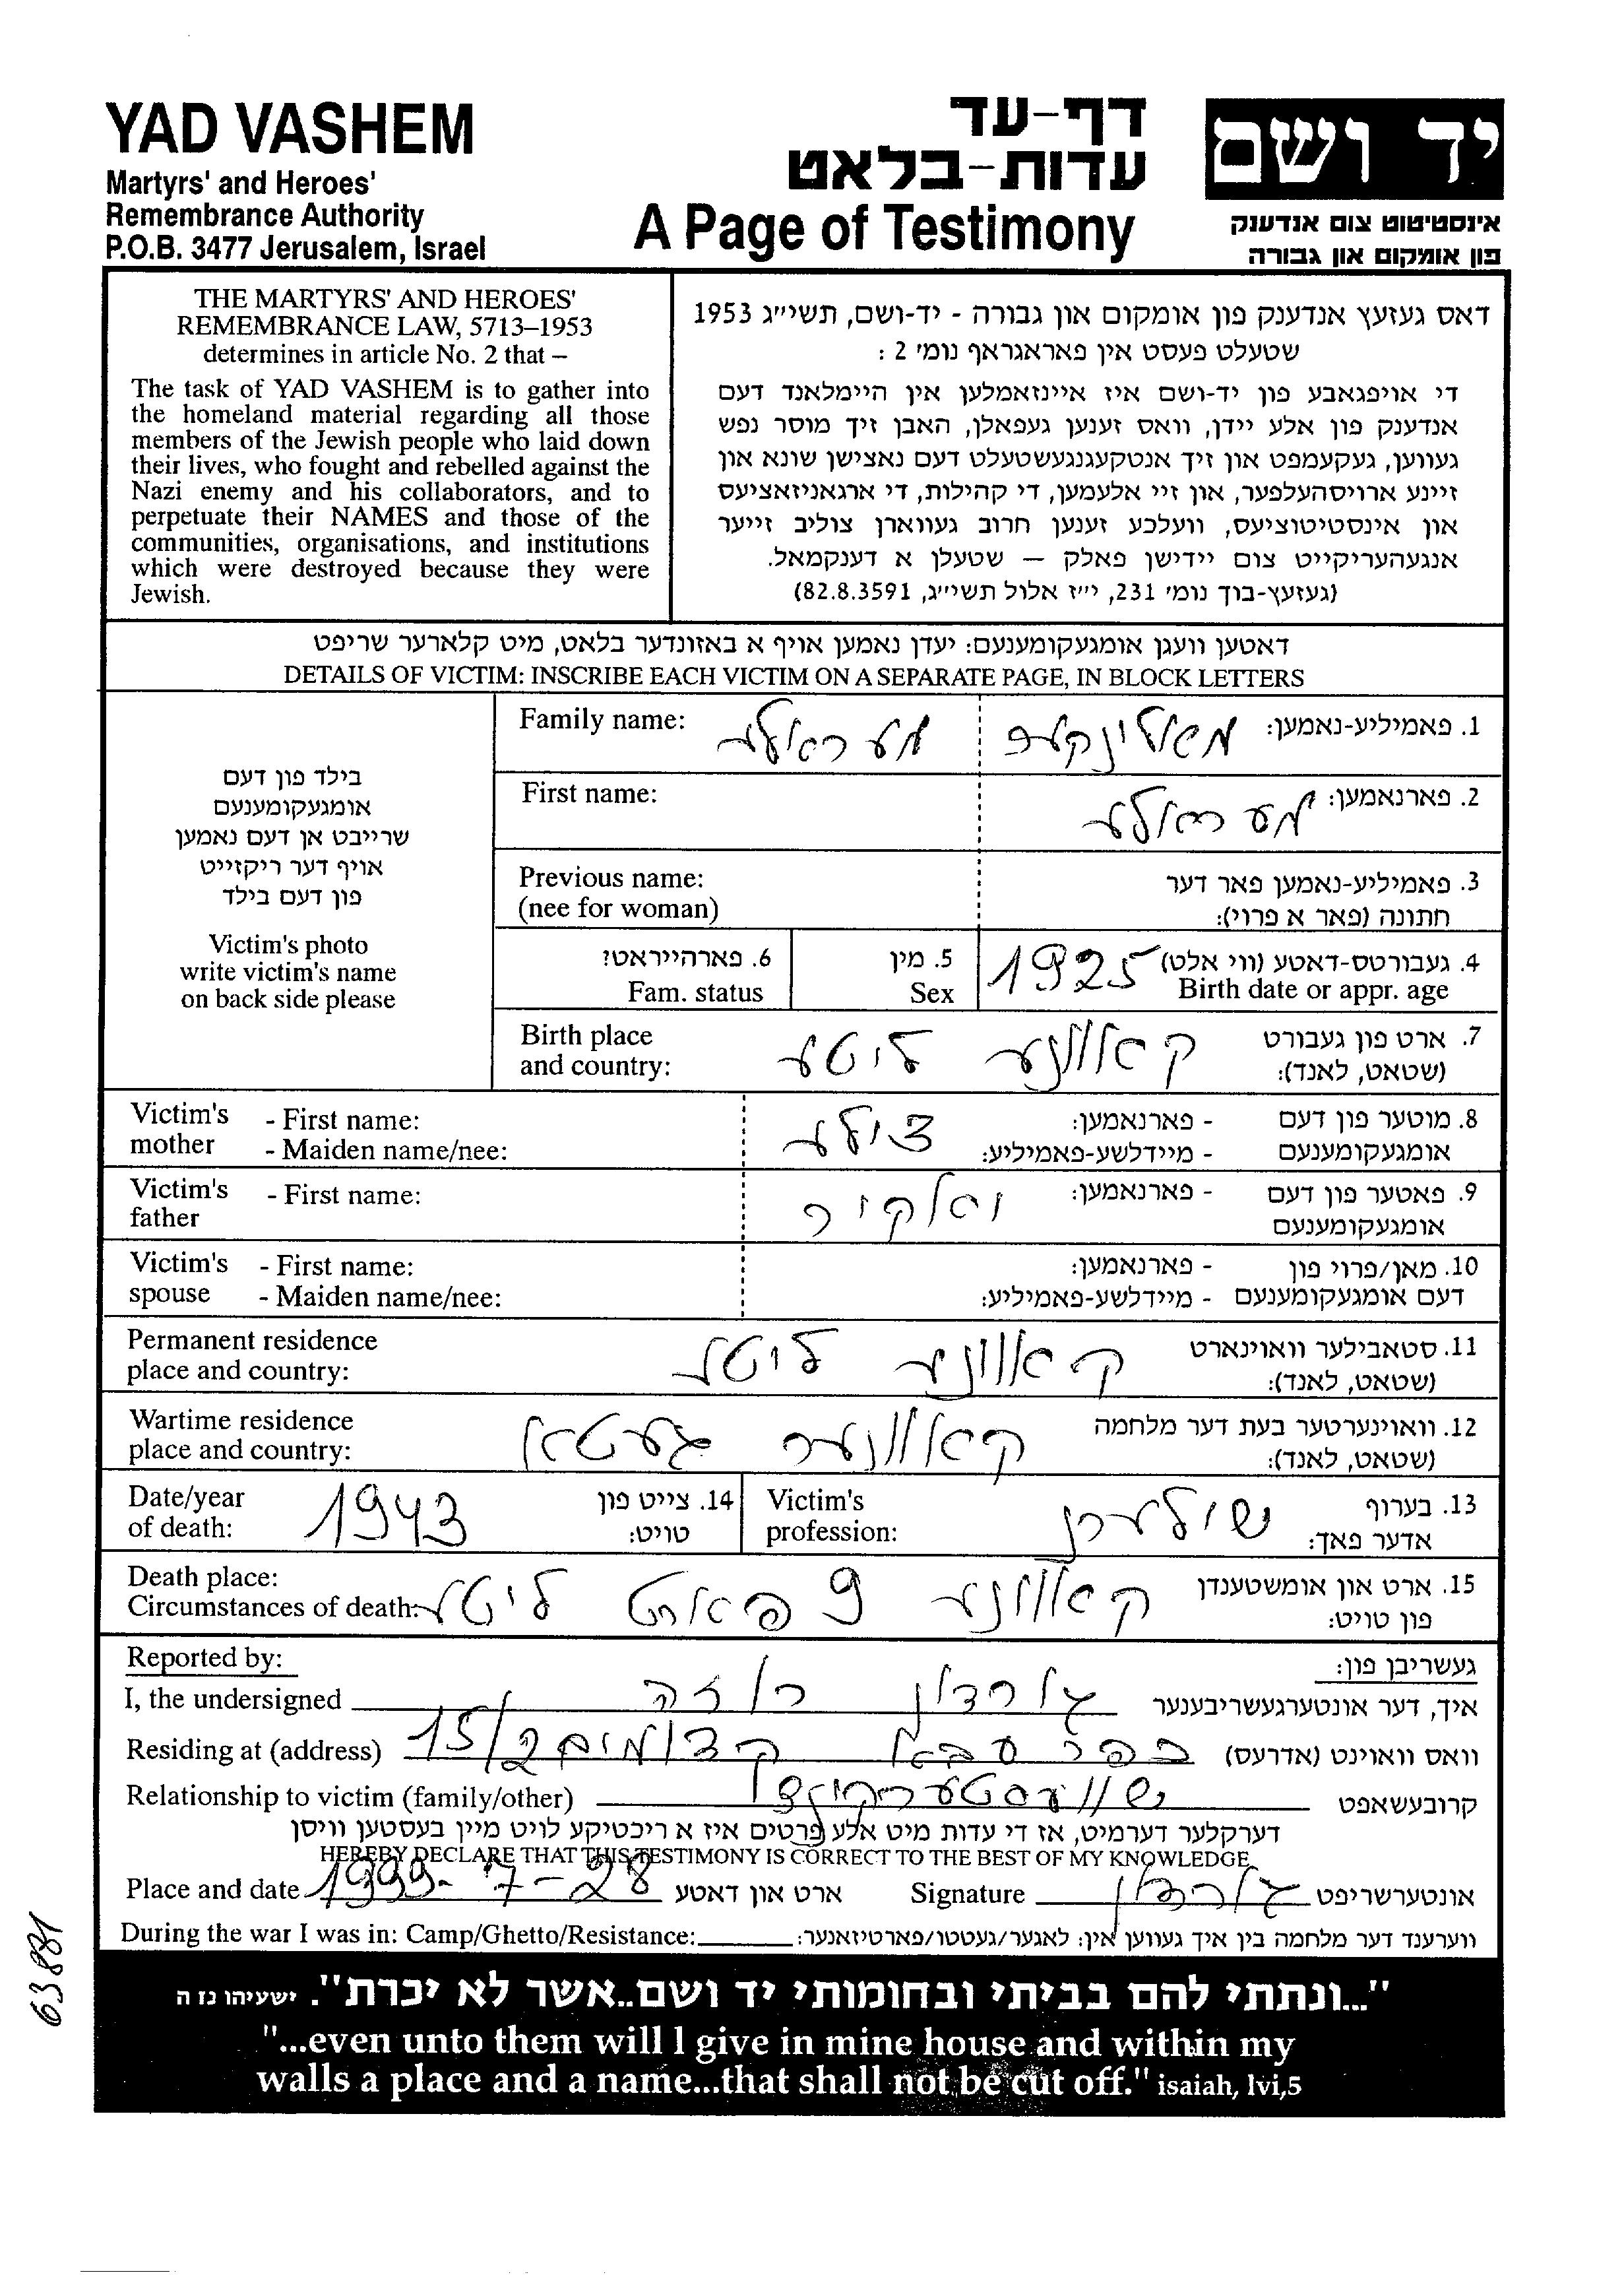 YAD VASHEM
Martyrs' and Heroes'
Remembrance Authority
P.O.B. 3477 Jerusalem, Israel
דף-עד
עדות-בלאט
A Page of Testimony
יד ושם
אינסטיטוט צום אנדענק
פון אומקום און גבורה
THE MARTYRS' AND HEROES'
REMEMBRANCE LAW, 5713–1953
determines in article No. 2 that –
The task of YAD VASHEM is to gather into
the homeland material regarding all those
members of the Jewish people who laid down
their lives, who fought and rebelled against the
Nazi enemy and his collaborators, and to
perpetuate their NAMES and those of the
communities, organisations, and institutions
which were destroyed because they were
Jewish.
דאס געזעץ אנדענק פון אומקום און גבורה - יד-ושם, תשי״ג 1953
שטעלט פעסט אין פאראגראף נומ׳ 2 :
די אויפגאבע פון יד-ושם איז איינזאמלען אין היימלאנד דעם
אנדענק פון אלע יידן, וואס זענען געפאלן, האבן זיך מוסר נפש
געווען, געקעמפט און זיך אנטקעגנגעשטעלט דעם נאצישן שונא און
זיינע ארויסהעלפער, און זיי אלעמען, די קהילות, די ארגאניזאציעס
און אינסטיטוציעס, וועלכע זענען חרוב געווארן צוליב זייער
אנגעהעריקייט צום יידישן פאלק – שטעלן א דענקמאל.
(געזעץ-בוך נומ׳ 231, י״ז אלול תשי״ג, 82.8.3591)
דאטען וועגן אומגעקומענעם: יעדן נאמען אויף א באזונדער בלאט, מיט קלארער שריפט
DETAILS OF VICTIM: INSCRIBE EACH VICTIM ON A SEPARATE PAGE, IN BLOCK LETTERS
בילד פון דעם
אומגעקומענעם
שרייבט אן דעם נאמען
אויף דער ריקזייט
פון דעם בילד
Victim's photo
write victim's name
on back side please
Family name: 1. פאמיליע-נאמען:
First name: 2. פארנאמען:
Previous name: 3. פאמיליע-נאמען פאר דער
(nee for woman) חתונה (פאר א פרוי):
6. פארהייראט? 5. מין 4. געבורטס-דאטע (ווי אלט) 1925
Fam. status Sex Birth date or appr. age
Birth place 7. ארט פון געבורט קאוונע ליטע
and country: (שטאט, לאנד):
Victim's - First name: 8. מוטער פון דעם - פארנאמען: צילע
mother - Maiden name/nee: אומגעקומענעם - מיידלשע-פאמיליע:
Victim's - First name: 9. פאטער פון דעם - פארנאמען:
father אומגעקומענעם
Victim's - First name: 10. מאן/פרוי פון - פארנאמען:
spouse - Maiden name/nee: דעם אומגעקומענעם - מיידלשע-פאמיליע:
Permanent residence 11. סטאבילער וואוינארט קאוונע ליטע
place and country: (שטאט, לאנד):
Wartime residence 12. וואוינערטער בעת דער מלחמה קאוונער געטא
place and country: (שטאט, לאנד):
Date/year 1943 14. צייט פון Victim's 13. בערוף שילערן
of death: טויט: profession: אדער פאך:
Death place: 15. ארט און אומשטענדן קאוונע 9 פארט ליטע
Circumstances of death: פון טויט:
Reported by: געשריבן פון:
I, the undersigned גורדון רוזה איך, דער אונטערגעשריבענער
Residing at (address) כפר סבא קדומים 15/2 וואס וואוינט (אדרעס)
Relationship to victim (family/other) שוועסטערקינד קרובעשאפט
דערקלער דערמיט, אז די עדות מיט אלע פרטים איז א ריכטיקע לויט מיין בעסטען וויסן
HEREBY DECLARE THAT THIS TESTIMONY IS CORRECT TO THE BEST OF MY KNOWLEDGE
Place and date 1999-7-28 ארט און דאטע Signature גורדון אונטערשריפט
During the war I was in: Camp/Ghetto/Resistance: ווערענד דער מלחמה בין איך געווען אין: לאגער/געטטו/פארטיזאנער:
"...ונתתי להם בביתי ובחומותי יד ושם..אשר לא יכרת". ישעיהו נז ה
"...even unto them will I give in mine house and within my
walls a place and a name...that shall not be cut off." isaiah, lvi,5
63881